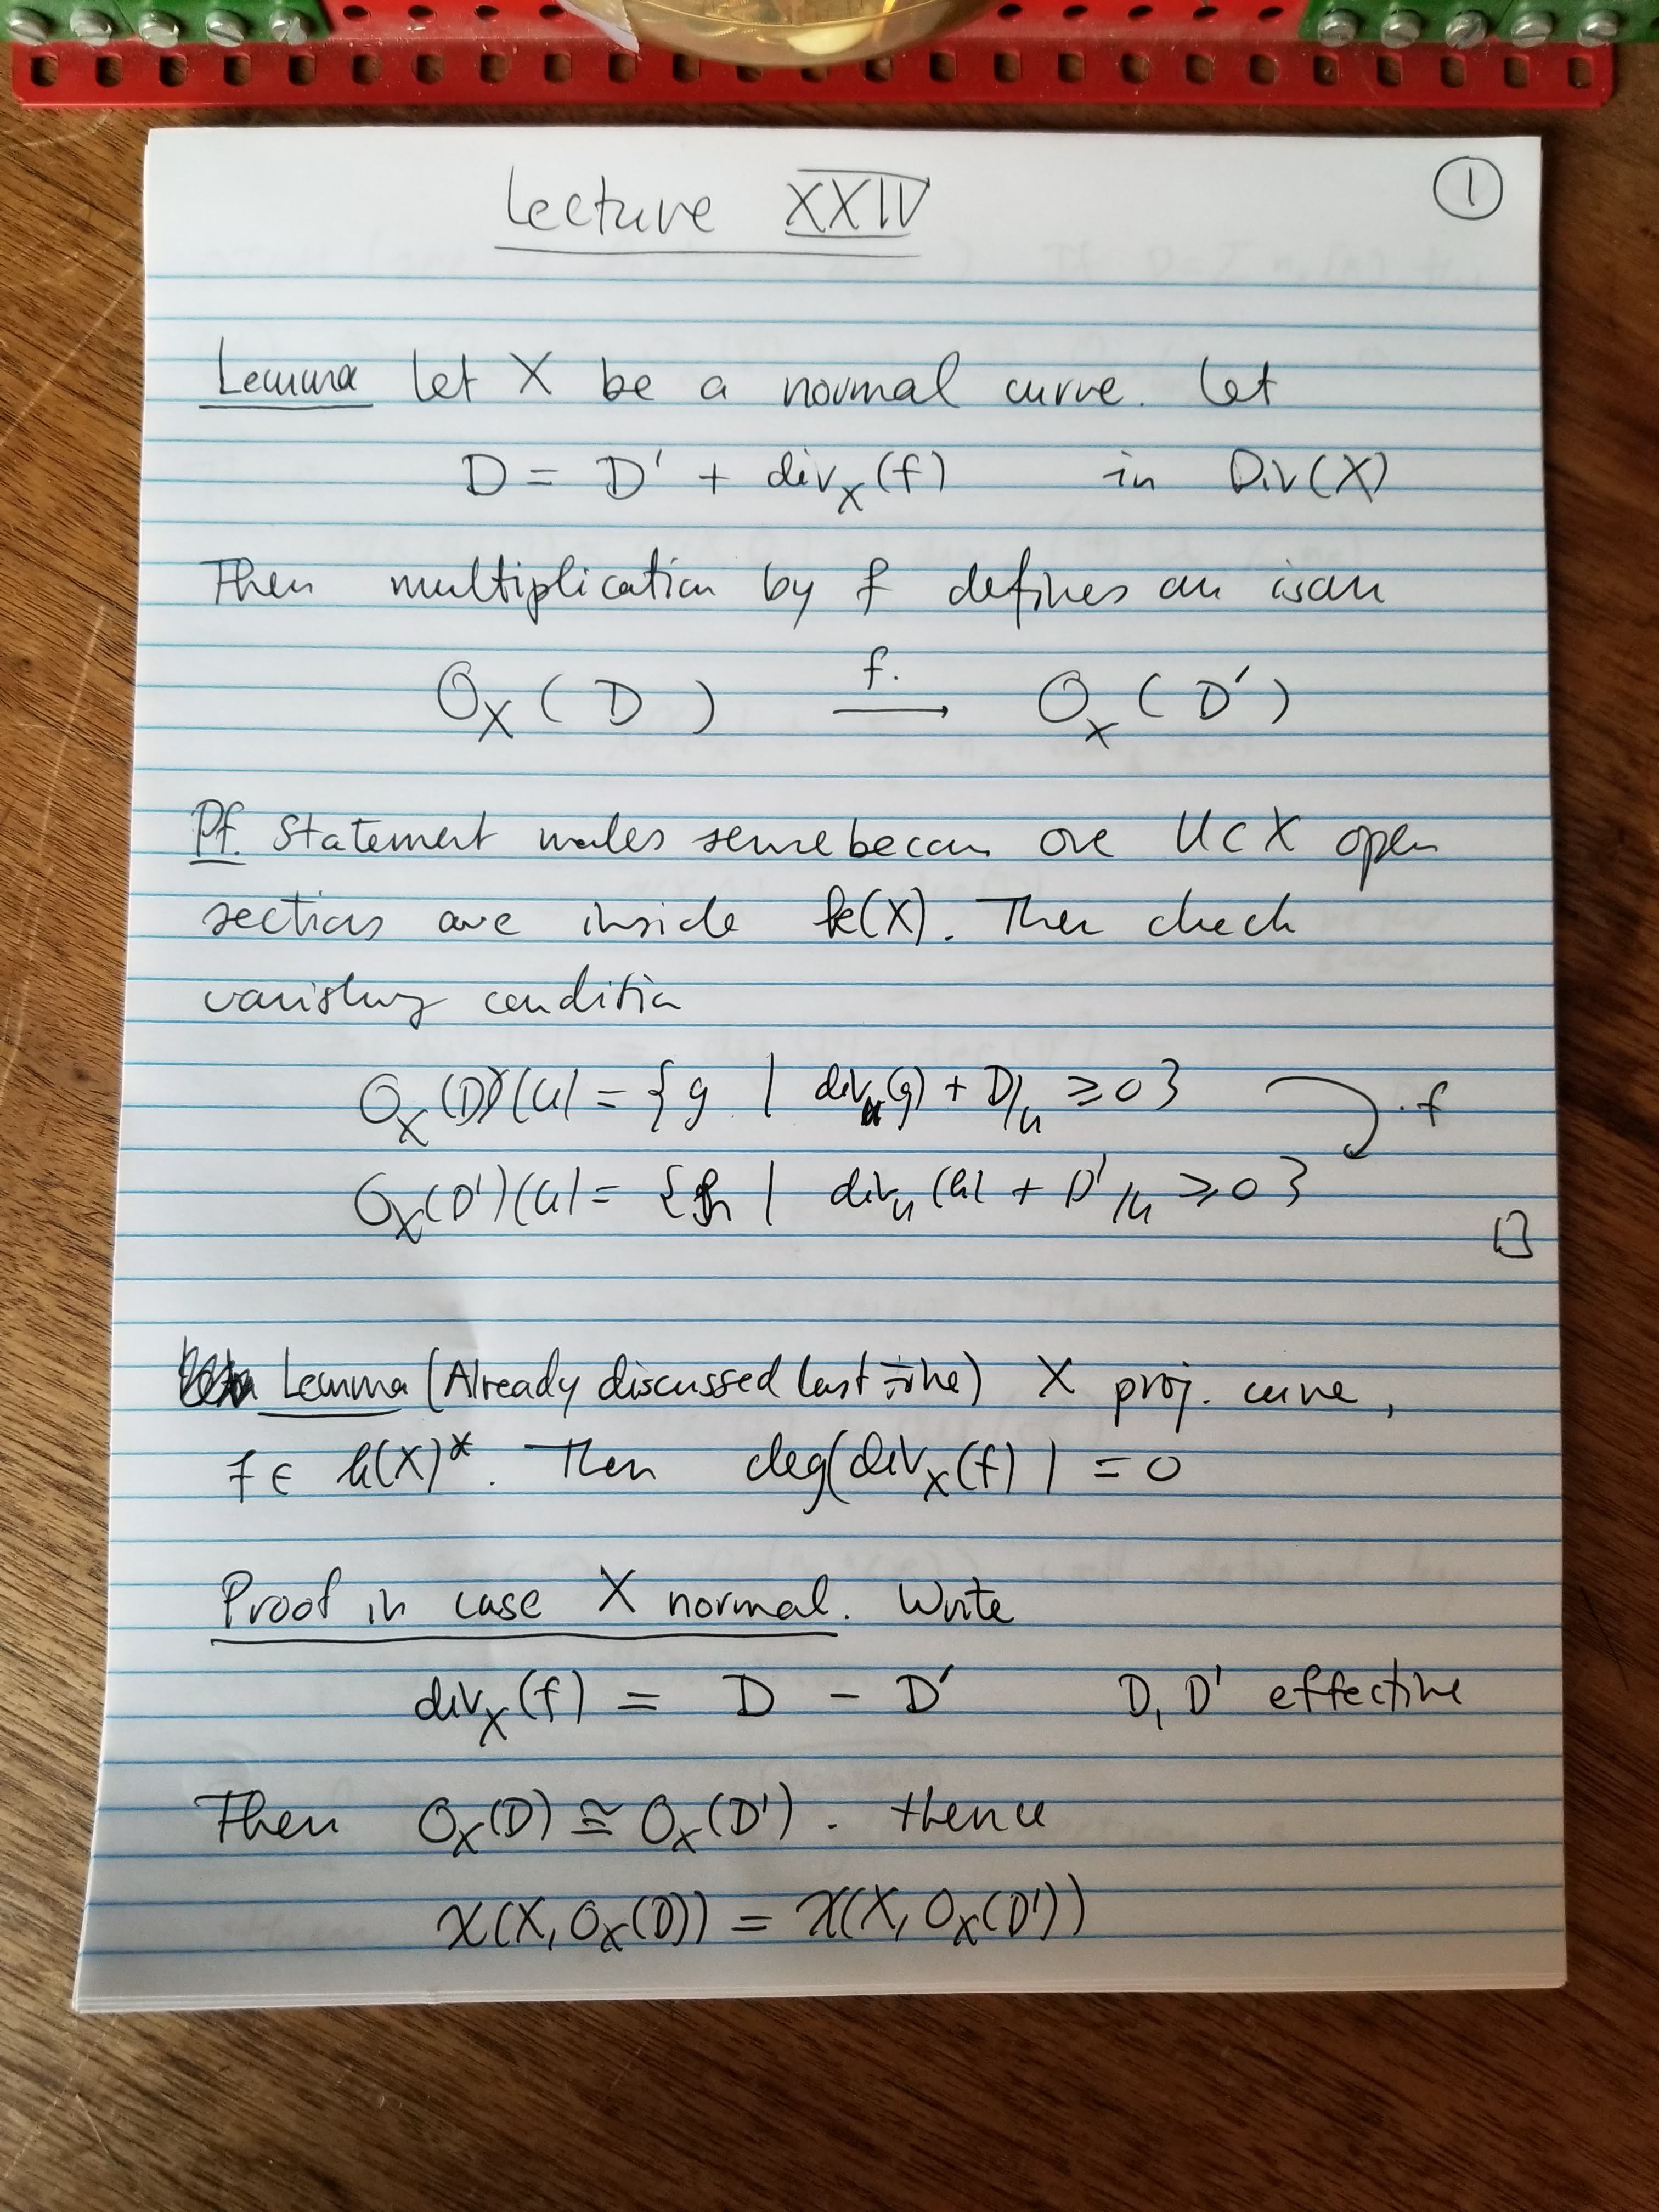 Lecture XXIV
①
Lemma Let X be a normal curve. Let
D = D' + div_X(f) in Div(X)
Then multiplication by f defines an isom
O_X(D) --f·--> O_X(D')
Pf. Statement makes sense becau ove U ⊂ X open
sections are inside k(X). Then check
vanishing condition
O_X(D)(U) = { g | div_U(g) + D|_U ≥ 0 } ·f
O_X(D')(U) = { h | div_U(h) + D'|_U ≥ 0 }
□
Lemma (Already discussed last time) X proj. curve,
f ∈ k(X)*. Then deg(div_X(f)) = 0
Proof in case X normal. Write
div_X(f) = D - D' D, D' effective
Then O_X(D) ≅ O_X(D'). thence
χ(X, O_X(D)) = χ(X, O_X(D'))